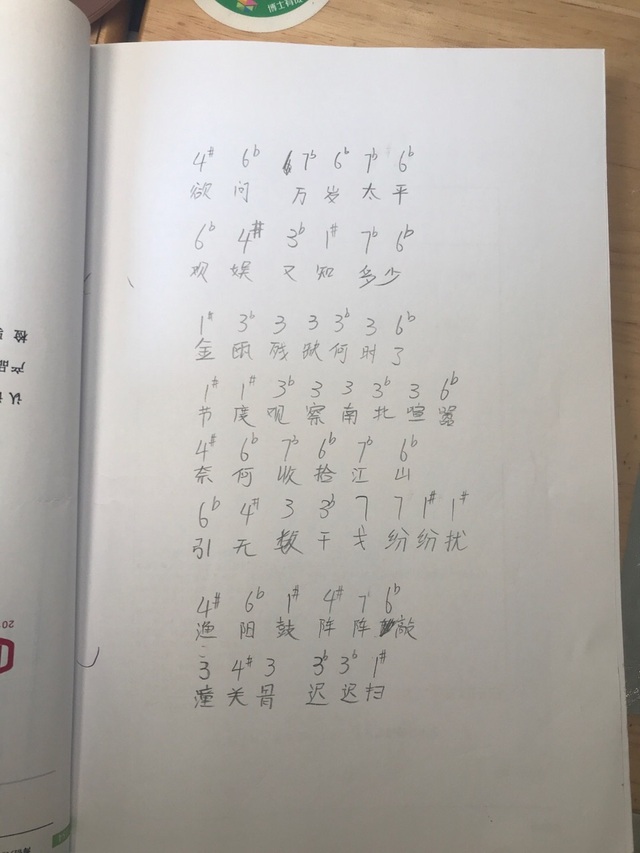 博士有成
4# 6b 7b 6b 7b 6b
欲问 万岁太平
6b 4# 3b 1# 7b 6b
欢娱又知多少
1# 3b 3 3 3b 3 6b
金瓯残缺何时了
1# 1# 3b 3 3 3b 3 6b
节度观察南北喧嚣
4# 6b 7b 6b 7b 6b
奈何收拾江山
6b 4# 3 3b 7 7 1# 1#
引无数干戈纷纷扰
4# 6b 1# 4# 7 6b
渔阳鼓阵阵敲
3 4# 3 3b 3b 1#
潼关骨 迟迟扫